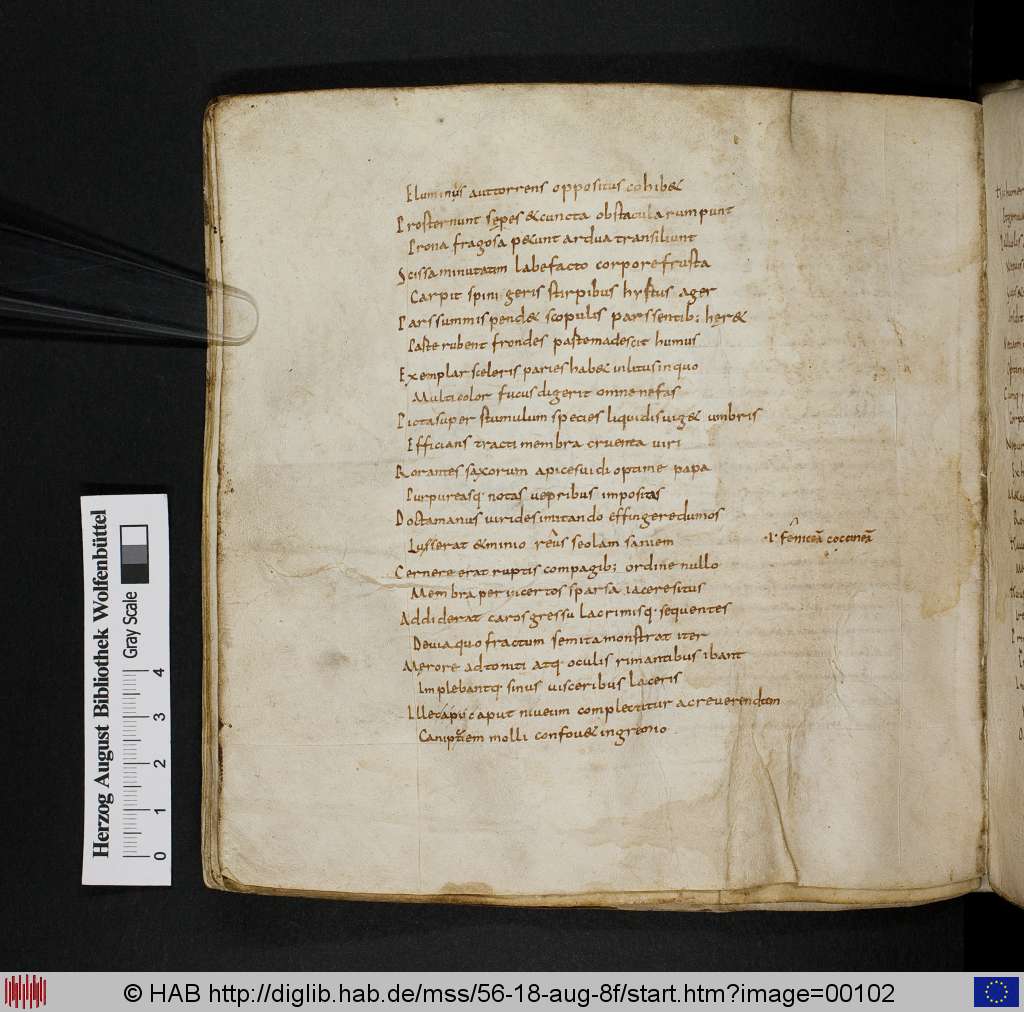 Fluminis aut torrens oppositus cohib&
Prosternunt sępes & cuncta obstacula rumpunt
Prona fragosa p&unt ardua transiliunt
Scissa minutatim labefacto corpore frusta
Carpit spini geris stirpibus hyrtus ager
Pars summis pend& scopulis pars sentib; hęr&
Parte rubent frondes parte madescit humus
Exemplar sceleris paries hab& inlitus in quo
Multicolor fucus digerit omne nefas
Picta super tumulum species liquidis uig& umbris
Effigians tracti membra cruenta uiri
Rorantes saxorum apices uidi optime papa
Purpureasq· notas uepribus impositas
Docta manus uirides imitando effingere dumos
Lusserat & minio seolam saniem
·i· feniceā cocceneā
Cernere erat ruptis compagib; ordine nullo
Membra per incertos sparsa iacere situs
Addiderat caros gressu lacrimisq· sequentes
Deuia quo fractum semita monstrat iter
Męrore adtoniti atq· oculis rimantibus ibant
Implebantq· sinus uisceribus laceris
Ille caput niueum complectitur ac reuerendam
Canitiem molli confou& in gremio
Herzog August Bibliothek Wolfenbüttel
Gray Scale
0 1 2 3 4
© HAB http://diglib.hab.de/mss/56-18-aug-8f/start.htm?image=00102